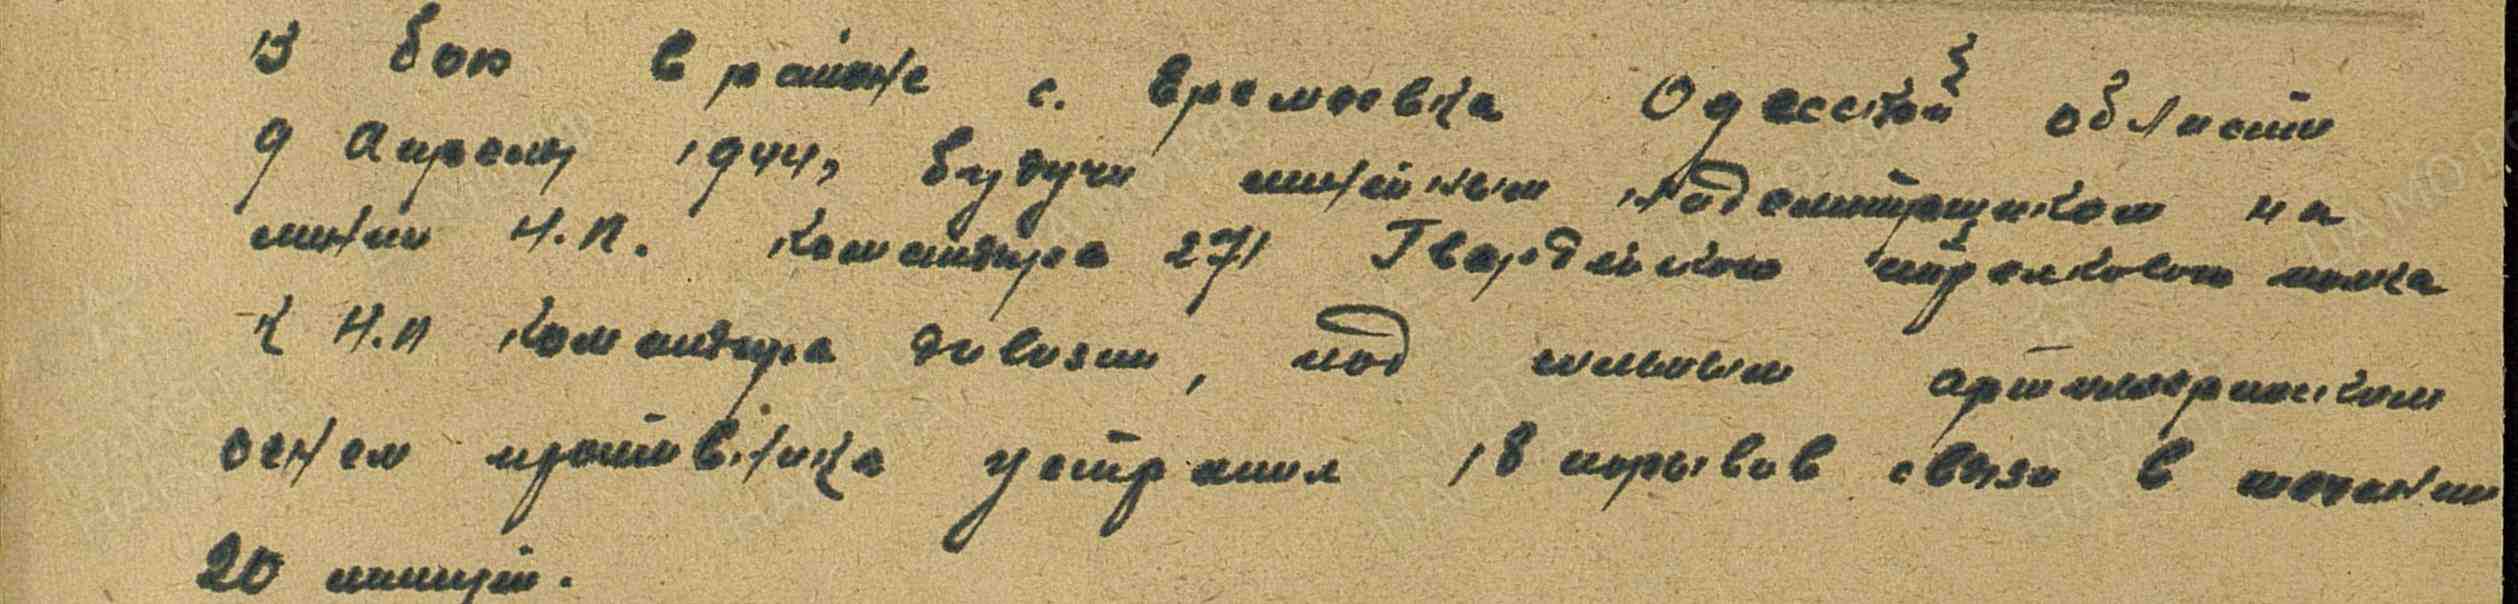 В бою в районе с. Еремеевка Одесской области
9 Апреля 1944, будучи линейным надсмотрщиком на
линии Н.П. командира 271 Гвардейского стрелкового полка
к Н.П командира дивизии, под сильным артиллерийским
огнем противника устранил 18 порывов связи в течении
20 минут.